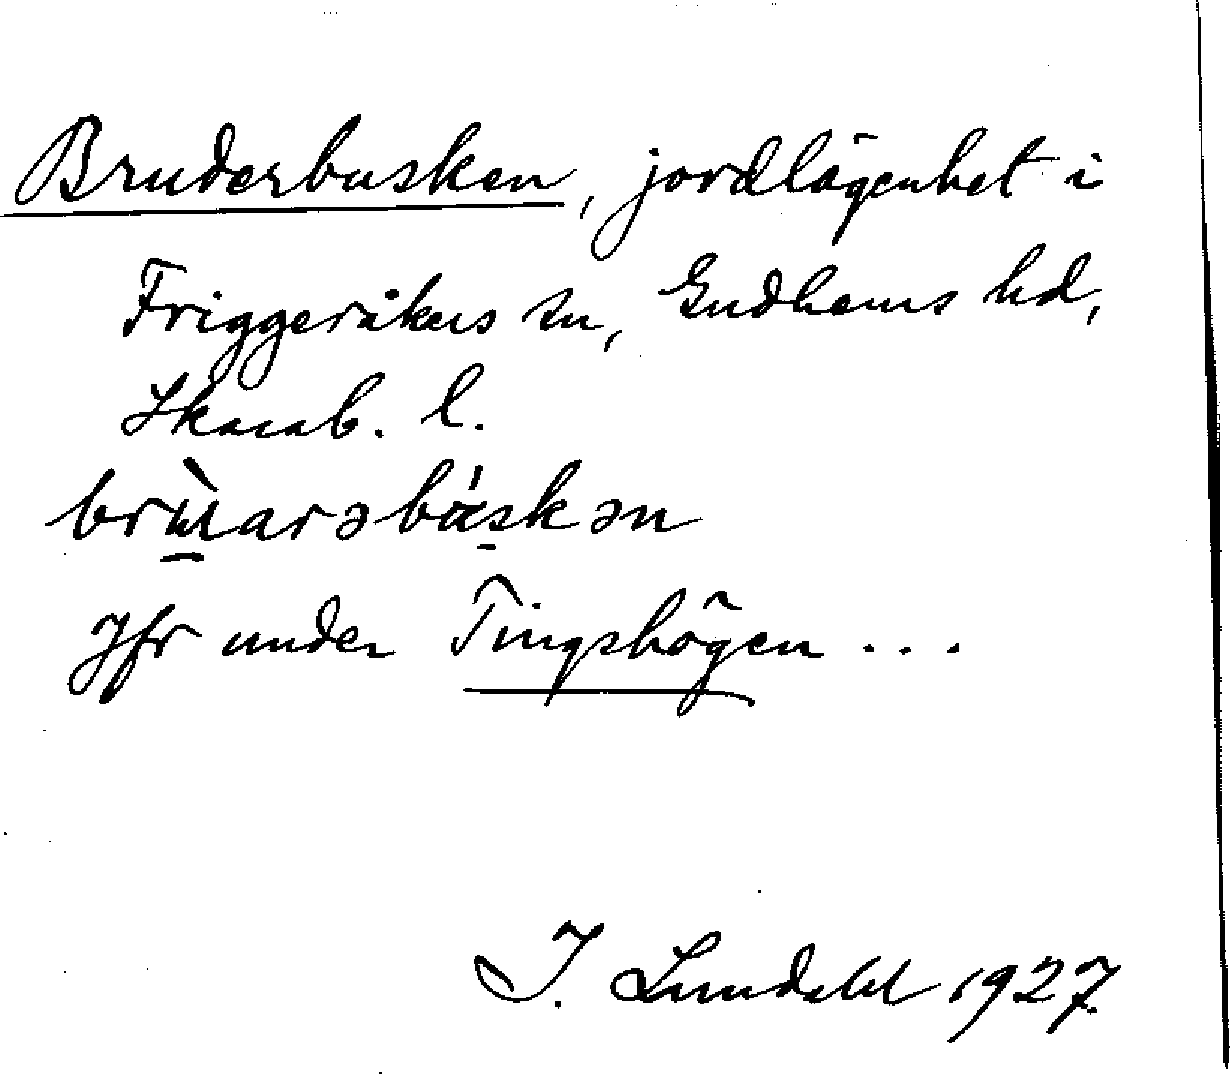 Bruderbusken, jordlägenhet i
Friggeråkers sn, Gudhems hd,
Skarab. l.
brùarəbáskən
Jfr under Tingshögen ...
I. Lundahl 1927.